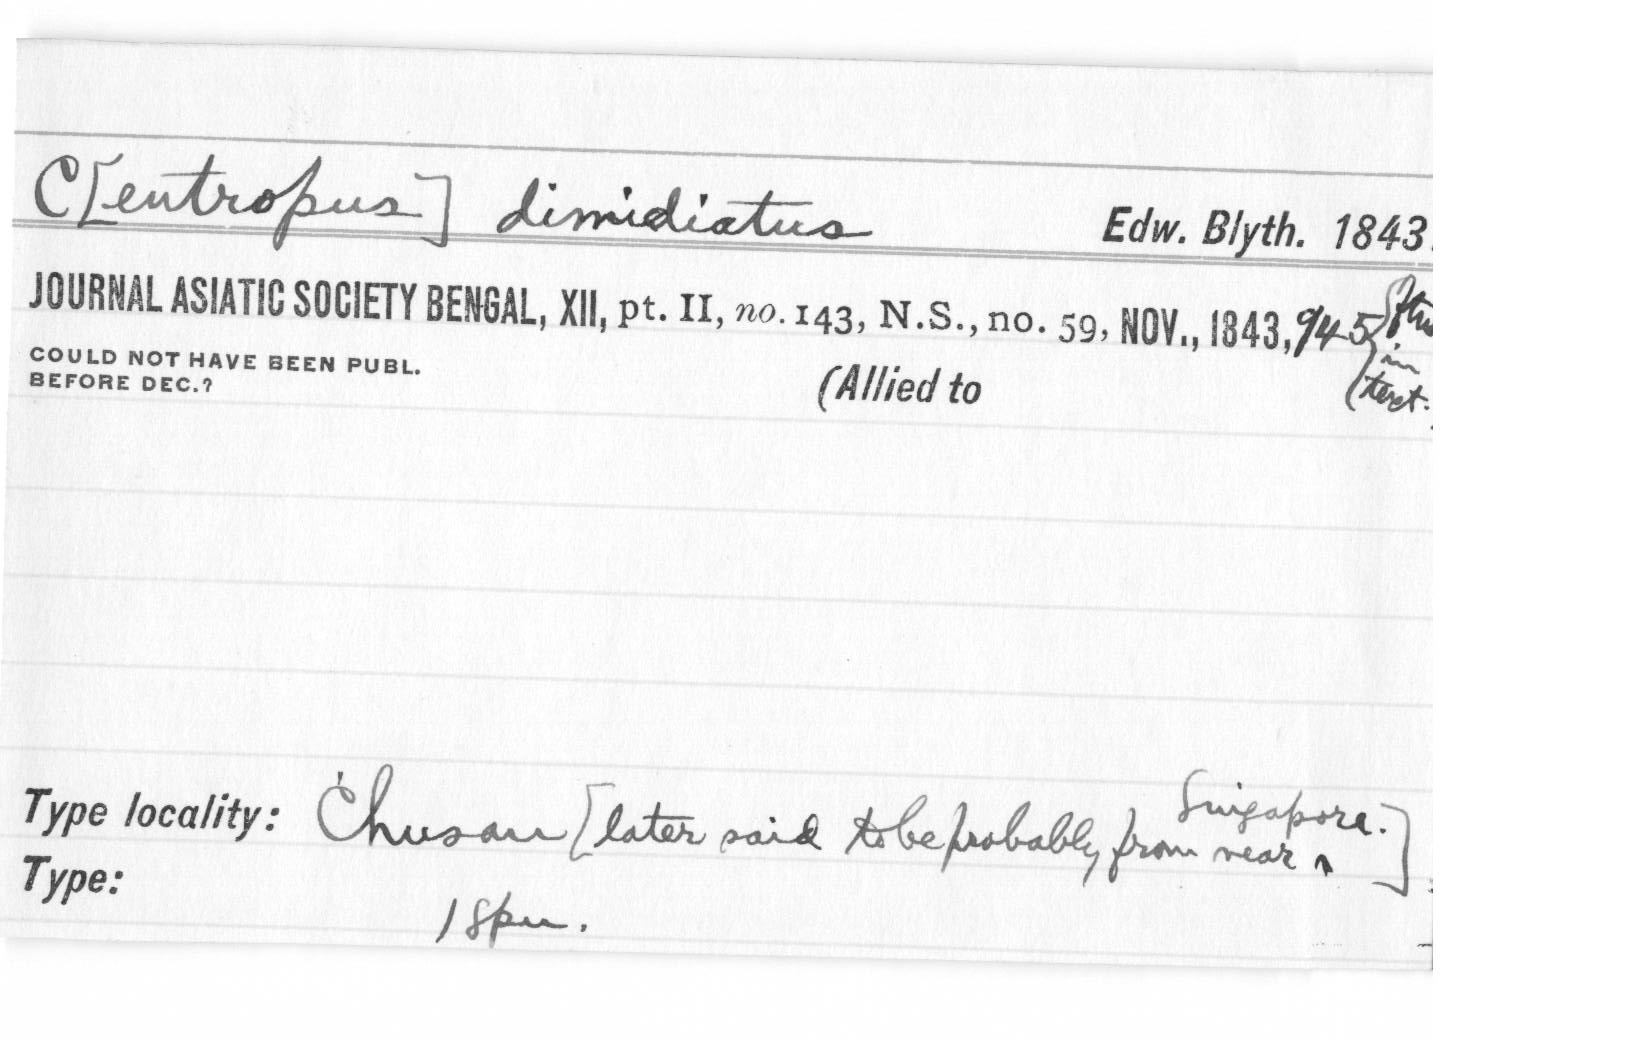 C[entropus] dimidiatus Edw. Blyth. 1843.
JOURNAL ASIATIC SOCIETY BENGAL, XII, pt. II, no. 143, N.S., no. 59, NOV., 1843, 945
in
text.
COULD NOT HAVE BEEN PUBL.
BEFORE DEC.?
(Allied to
Type locality: Chusan [later said to be probably from near Singapore.]
Type:
1 spm.